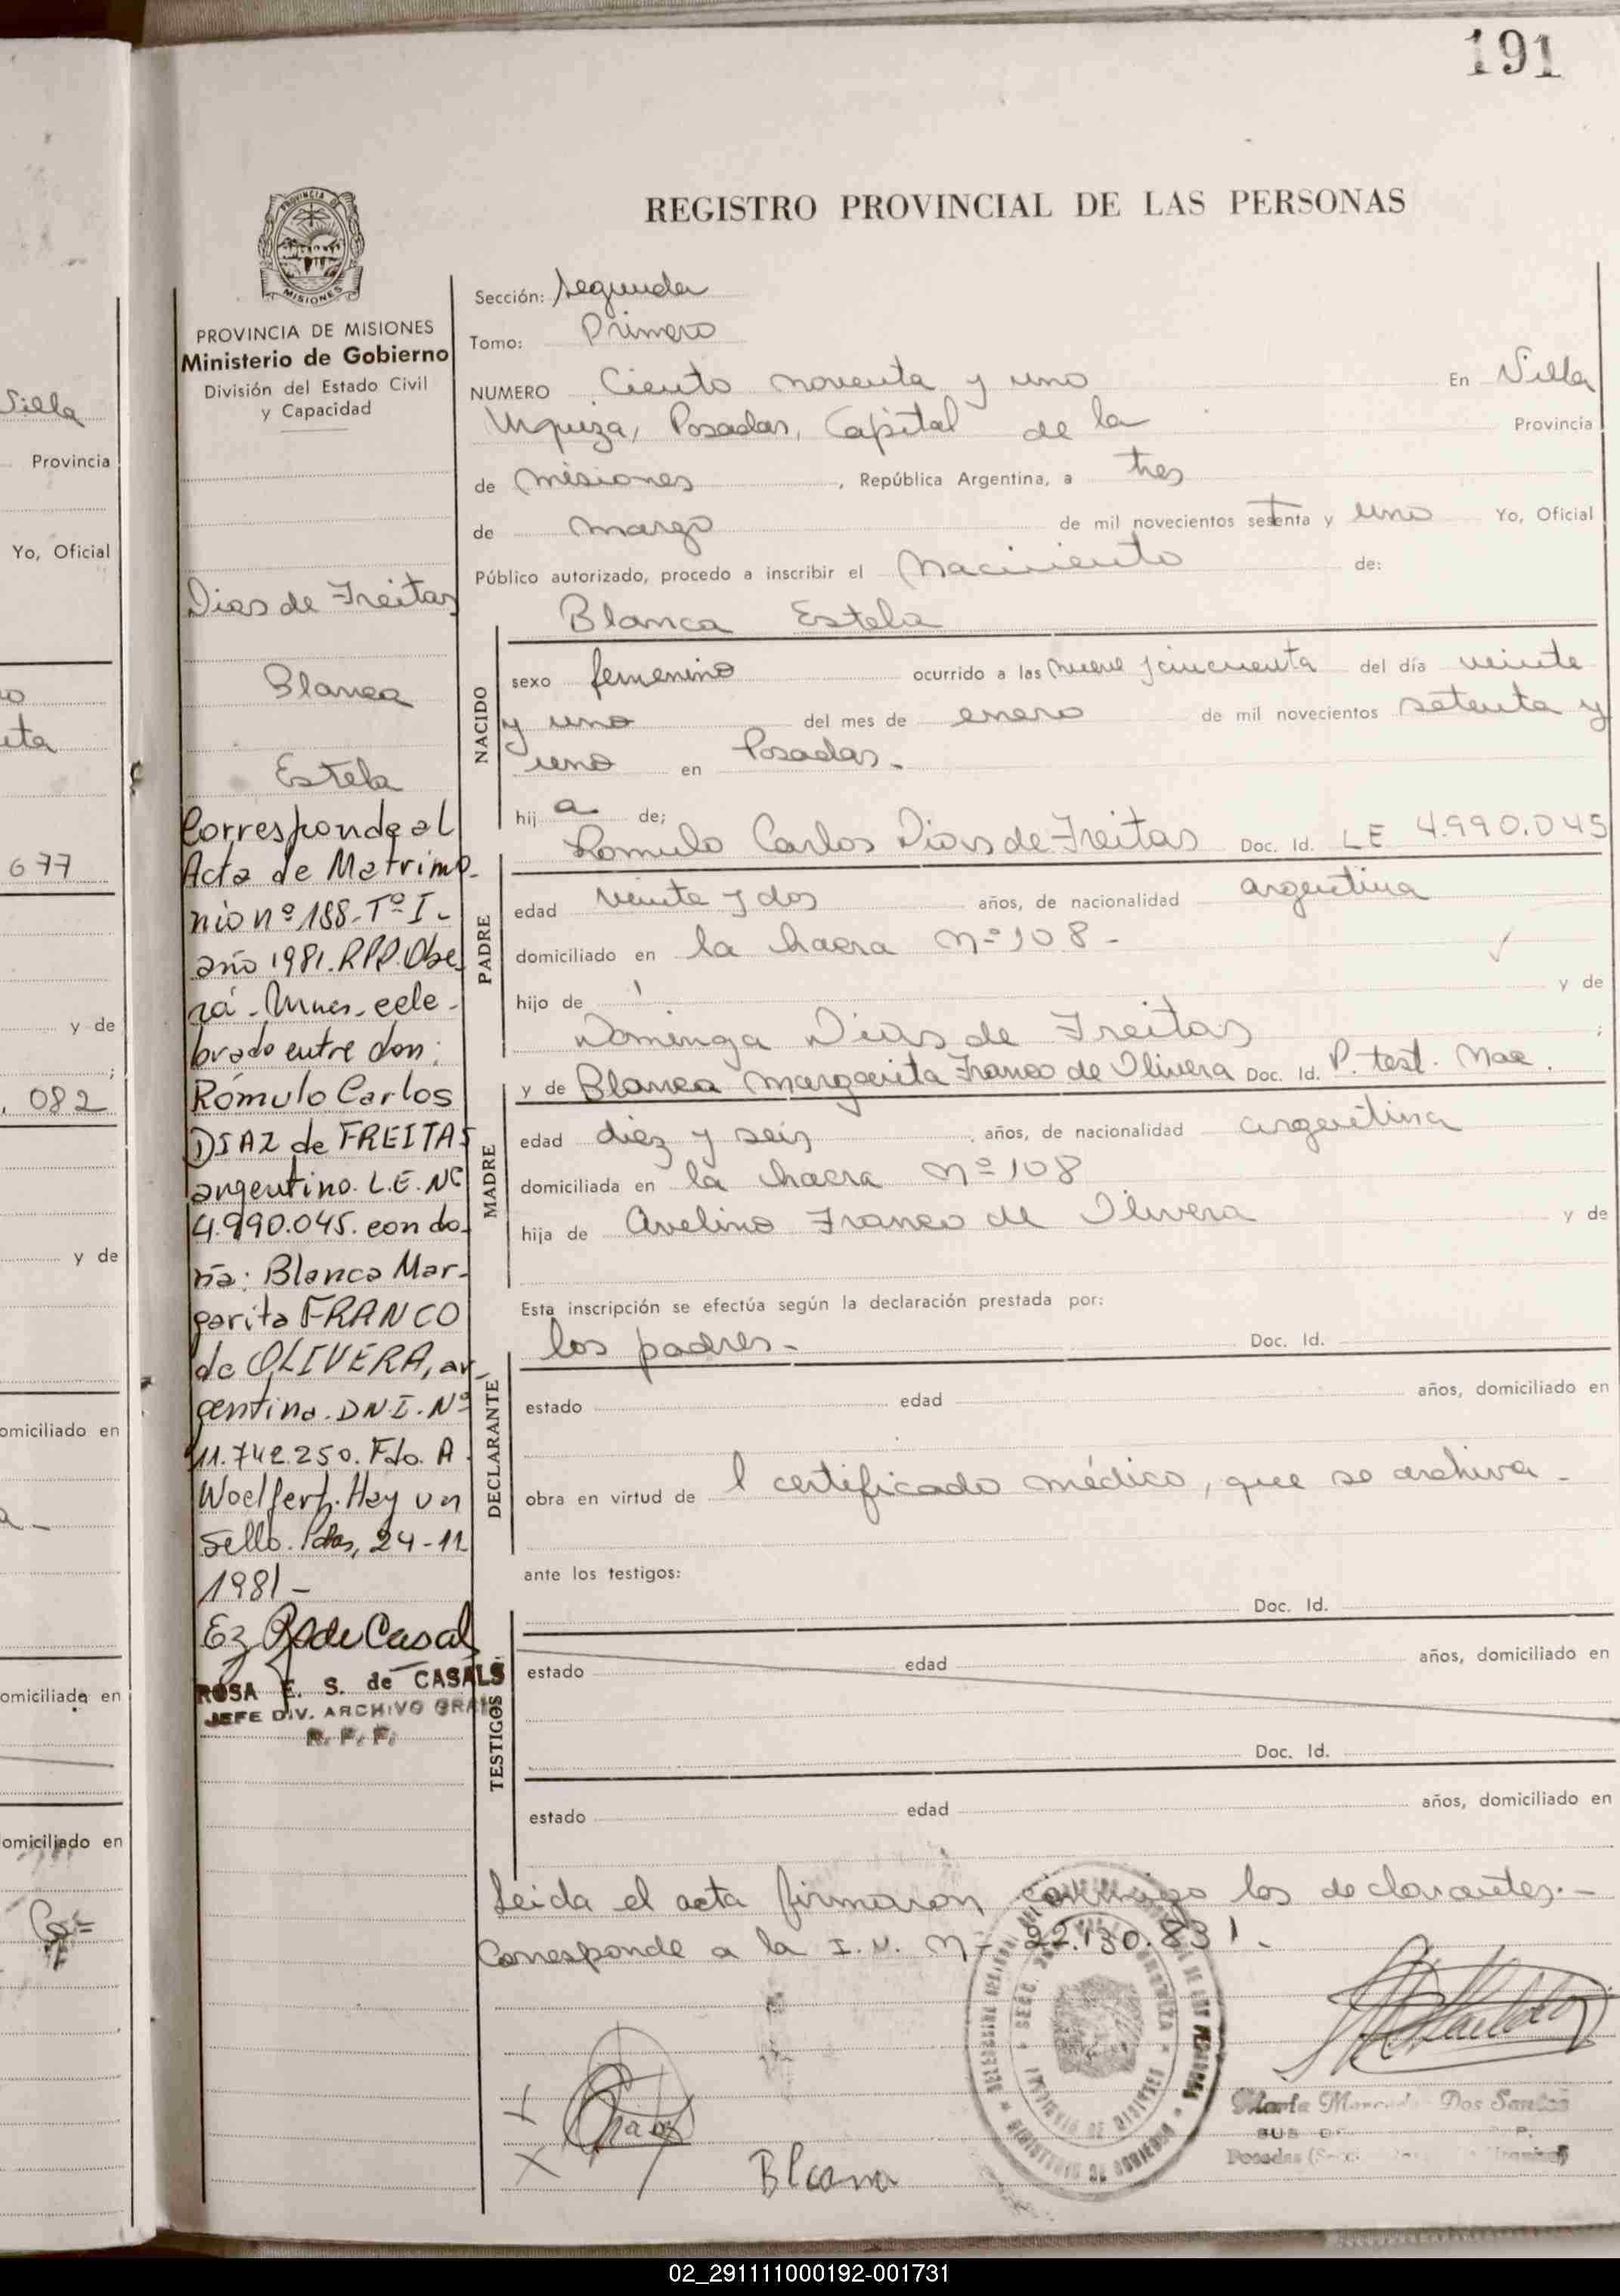 191
REGISTRO PROVINCIAL DE LAS PERSONAS
PROVINCIA DE
MISIONES
PROVINCIA DE MISIONES
Ministerio de Gobierno
División del Estado Civil
y Capacidad
Dias de Freitas
Blanca
Estela
Corresponde al
Acta de Matrimo-
nio nº 188-Tº I-
año 1981. RPP. Obe-
rá - Mnes, cele-
brado entre don:
Rómulo Carlos
DIAZ de FREITAS
argentino. L.E. Nº
4.990.045. con do-
ña: Blanca Mar-
garita FRANCO
de OLIVERA, ar
gentina. DNI. Nº
11.742.250. Fdo. A
Woelfert. Hay un
sello. Pdas, 24-11
1981-
ROSA E. S. de CASALS
JEFE DIV. ARCHIVO GRAL
Sección: Segunda
Tomo: Primero
NUMERO Ciento noventa y uno En Villa
Urquiza, Posadas, Capital de la Provincia
de Misiones, República Argentina, a tres
de marzo de mil novecientos setenta y uno Yo, Oficial
Público autorizado, procedo a inscribir el Nacimiento de:
Blanca Estela
NACIDO
sexo femenino ocurrido a las nueve y cincuenta del día veinte
y uno del mes de enero de mil novecientos setenta y
uno en Posadas.-
hij a de;
Romulo Carlos Dias de Freitas Doc. Id. LE 4.990.045
PADRE
edad veinte y dos años, de nacionalidad argentina
domiciliado en la chacra nº 108-
hijo de y de
Dominga Dias de Freitas ;
y de Blanca Margarita Franco de Olivera Doc. Id. P. test. Nac.
MADRE
edad diez y seis años, de nacionalidad argentina
domiciliada en la chacra nº 108
hija de Avelino Franco de Olivera y de
Esta inscripción se efectúa según la declaración prestada por:
los padres.- Doc. Id.
DECLARANTE
estado edad años, domiciliado en
obra en virtud de l certificado médico, que se archiva.-
ante los testigos:
Doc. Id.
TESTIGOS
estado edad años, domiciliado en
Doc. Id.
estado edad años, domiciliado en
Leida el acta firmaron conmigo los declarantes.-
Corresponde a la I.N. nº 22.130.831.-
Blanca
Dos Santos
Posadas
Villa
Provincia
Yo, Oficial
677
y de
;
082
y de
omiciliado en
omiciliada en
omiciliado en
02_291111000192-001731